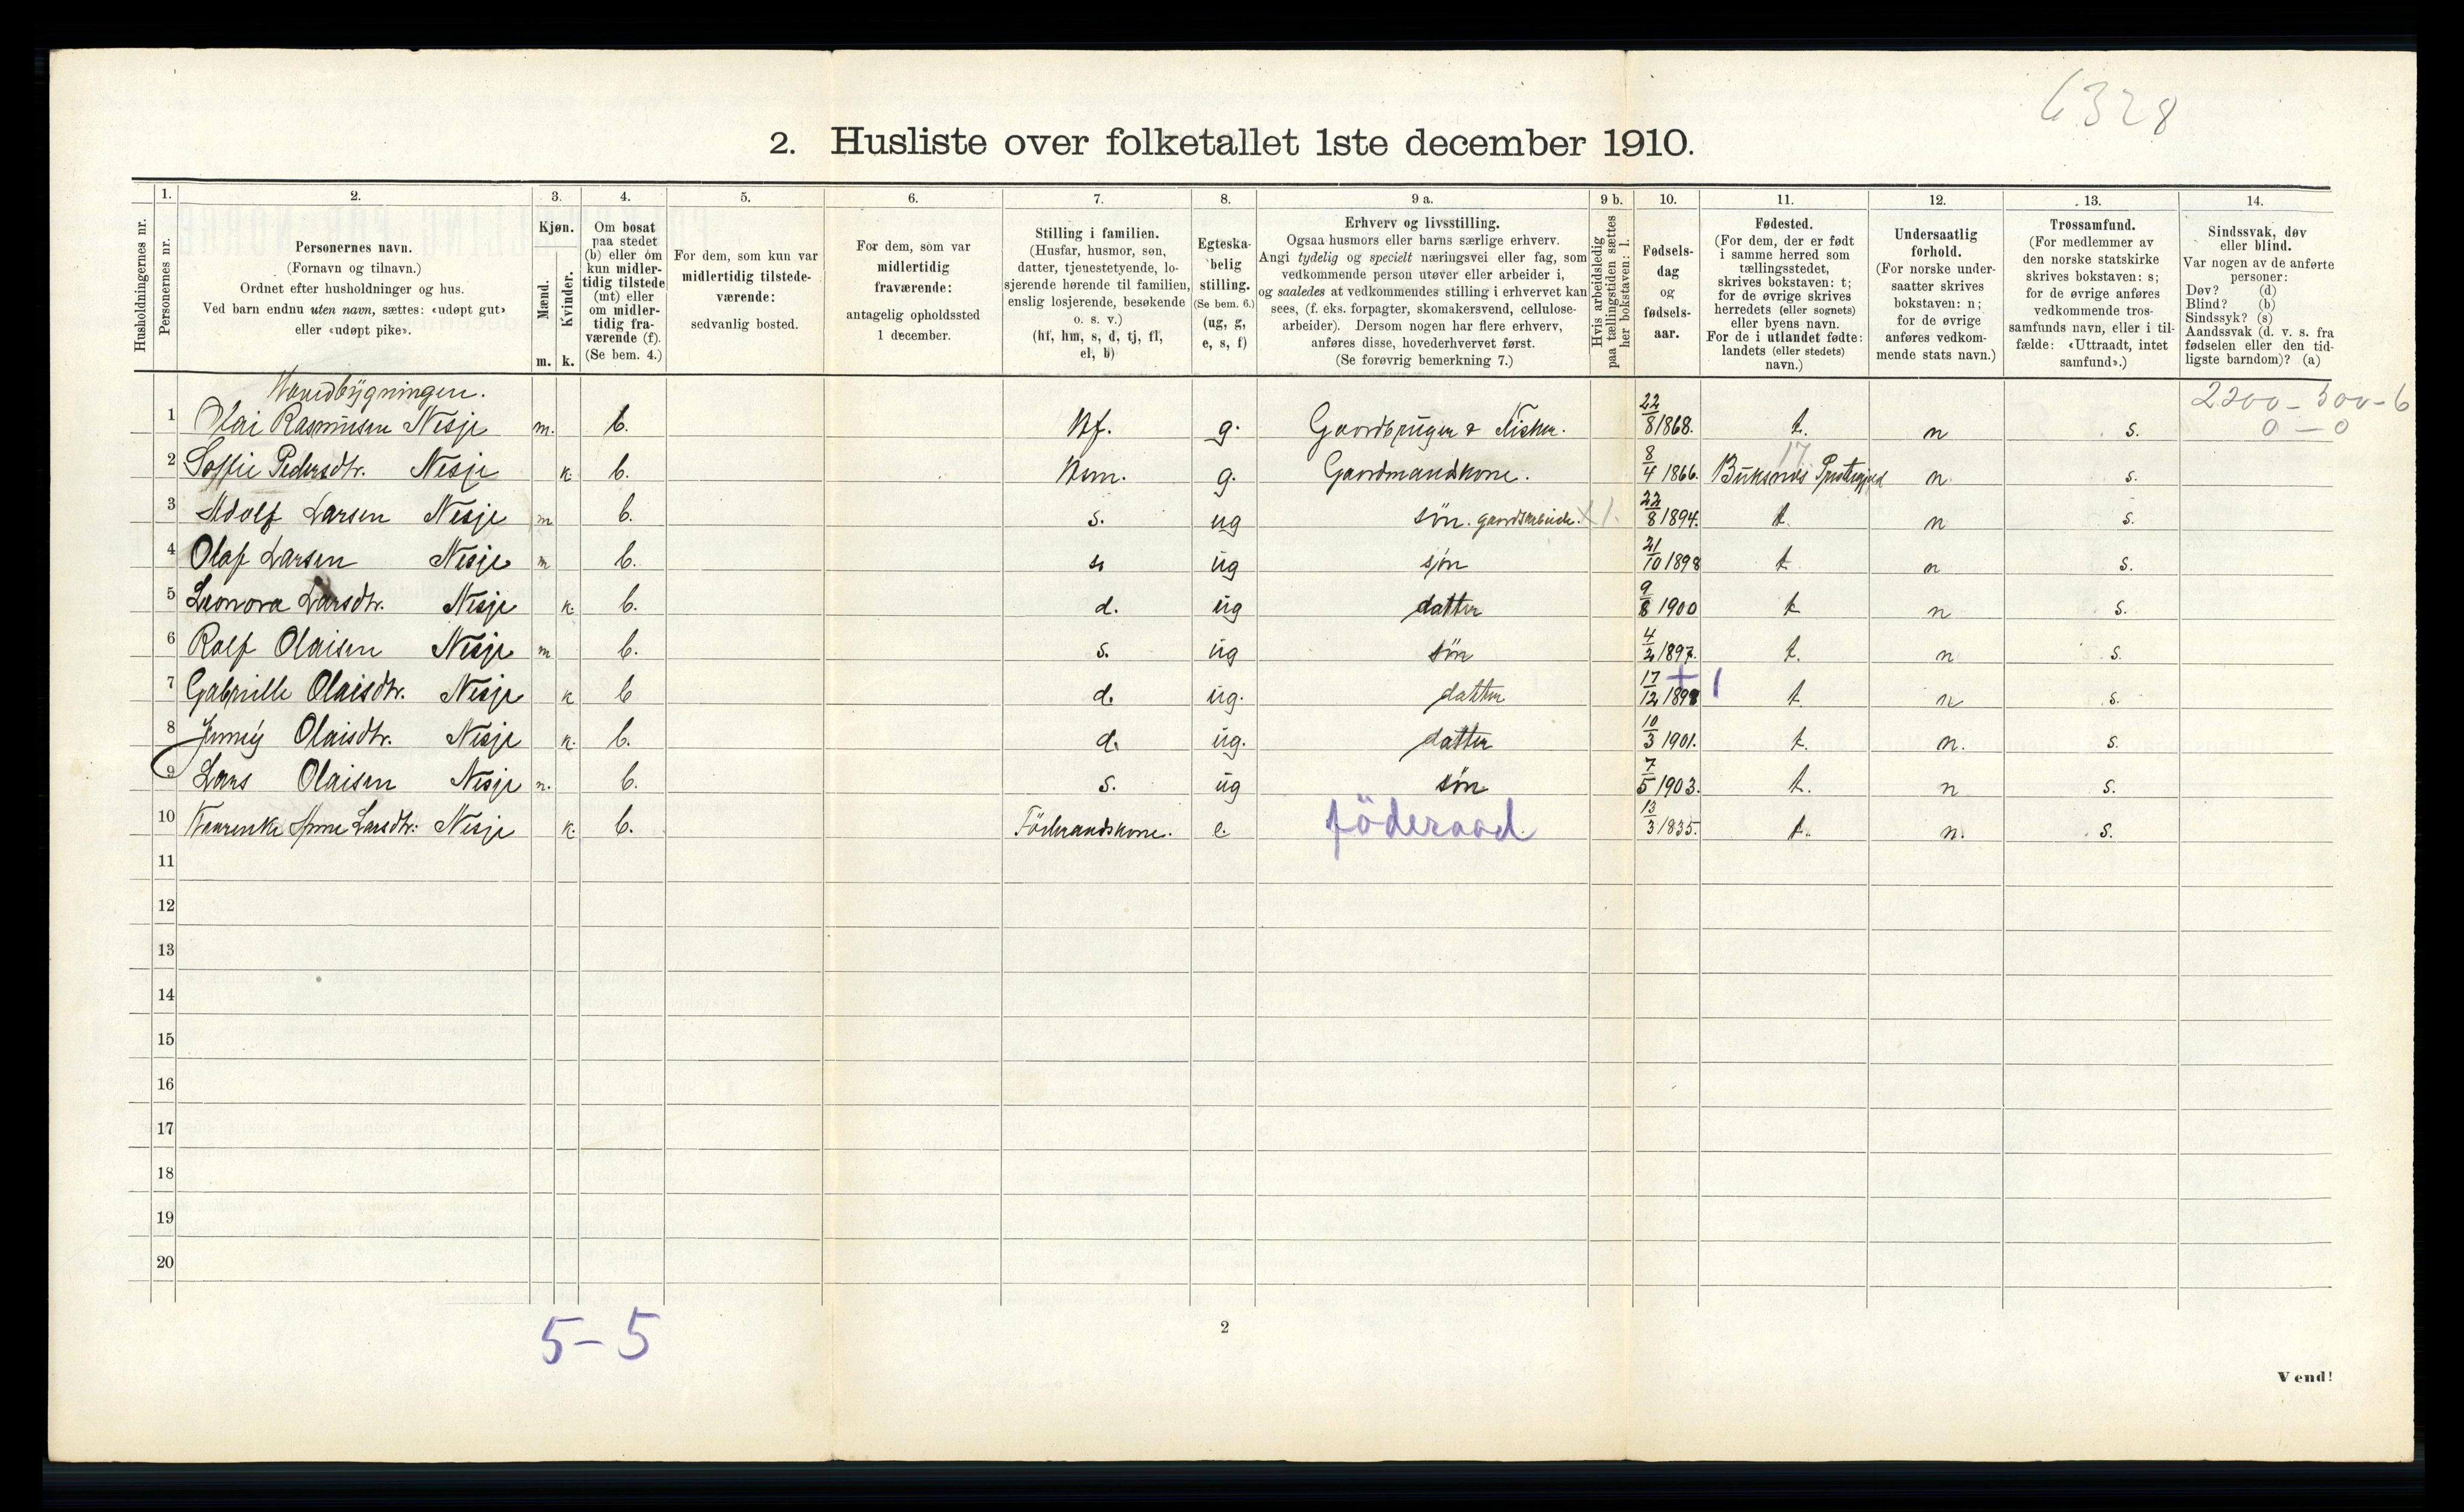 6328
2. Husliste over folketallet 1ste december 1910.
Husholdningernes nr.
1.
Personernes nr.
2.
Personernes navn.
(Fornavn og tilnavn.)
Ordnet efter husholdninger og hus.
Ved barn endnu uten navn, sættes: «udøpt gut»
eller «udøpt pike».
3.
Kjøn.
Mænd.
Kvinder.
m. k.
4.
Om bosat
paa stedet
(b) eller om
kun midler-
tidig tilstede
(mt) eller
om midler-
tidig fra-
værende (f).
(Se bem. 4.)
5.
For dem, som kun var
midlertidig tilstede-
værende:
sedvanlig bosted.
6.
For dem, som var
midlertidig
fraværende:
antagelig opholdssted
1 december.
7.
Stilling i familien.
(Husfar, husmor, søn,
datter, tjenestetyende, lo-
sjerende hørende til familien,
enslig losjerende, besøkende
o. s. v.)
(hf, hm, s, d, tj, fl,
el, b)
8.
Egteska-
belig
stilling.
(Se bem. 6.)
(ug, g,
e, s, f)
9 a.
Erhverv og livsstilling.
Ogsaa husmors eller barns særlige erhverv.
Angi tydelig og specielt næringsvei eller fag, som
vedkommende person utøver eller arbeider i,
og saaledes at vedkommendes stilling i erhvervet kan
sees, (f. eks. forpagter, skomakersvend, cellulose-
arbeider). Dersom nogen har flere erhverv,
anføres disse, hovederhvervet først.
(Se forøvrig bemerkning 7.)
9 b.
Hvis arbeidsledig
paa tællingstiden sættes
her bokstaven: l.
10.
Fødsels-
dag
og
fødsels-
aar.
11.
Fødested.
(For dem, der er født
i samme herred som
tællingsstedet,
skrives bokstaven: t;
for de øvrige skrives
herredets (eller sognets)
eller byens navn.
For de i utlandet fødte:
landets (eller stedets)
navn.)
12.
Undersaatlig
forhold.
(For norske under-
saatter skrives
bokstaven: n;
for de øvrige
anføres vedkom-
mende stats navn.)
13.
Trossamfund.
(For medlemmer av
den norske statskirke
skrives bokstaven: s;
for de øvrige anføres
vedkommende tros-
samfunds navn, eller i til-
fælde: «Uttraadt, intet
samfund».)
14.
Sindssvak, døv
eller blind.
Var nogen av de anførte
personer:
Døv? (d)
Blind? (b)
Sindssyk? (s)
Aandssvak (d. v. s. fra
fødselen eller den tid-
ligste barndom)? (a)
Hovedbygningen.
2200 - 300 - 6
1 Olai Rasmusen Nesje m. b. Hf. g. Gaardbruger & Fisker. 22/8 1868. t. n s. 0 - 0
17
2 Soffie Pedersdtr. Nesje k. b. Hm. g. Gaardmandskone. 8/4 1866. Buksnes n s.
3 Adolf Larsen Nesje m b. s. ug søn. gaardsarbeide. 22/8 1894. t. n s.
4 Olaf Larsen Nesje m b. s ug sjøn 21/10 1898 t n s.
5 Leonora Larsdtr. Nesje k. b. d. ug datter 9/8 1900 t n s.
6 Rolf Olaisen Nesje m b. s. ug søn 4/2 1897. t. n s.
7 Gabrielle Olaisdtr. Nesje k b d. ug. datter 17/12 1898 + 1 t. n s.
8 Jenny Olaisdtr. Nesje k. b. d. ug. datter 10/3 1901. t. n. s.
9 Lars Olaisen Nesje m. b. s. ug søn 7/5 1903. t. n s.
10 Anne Larsdtr: Nesje k. b. e. föderaad 13/3 1835. t. n. s.
11
12
13
14
15
16
17
18
19
20
5 - 5
2
Vend!